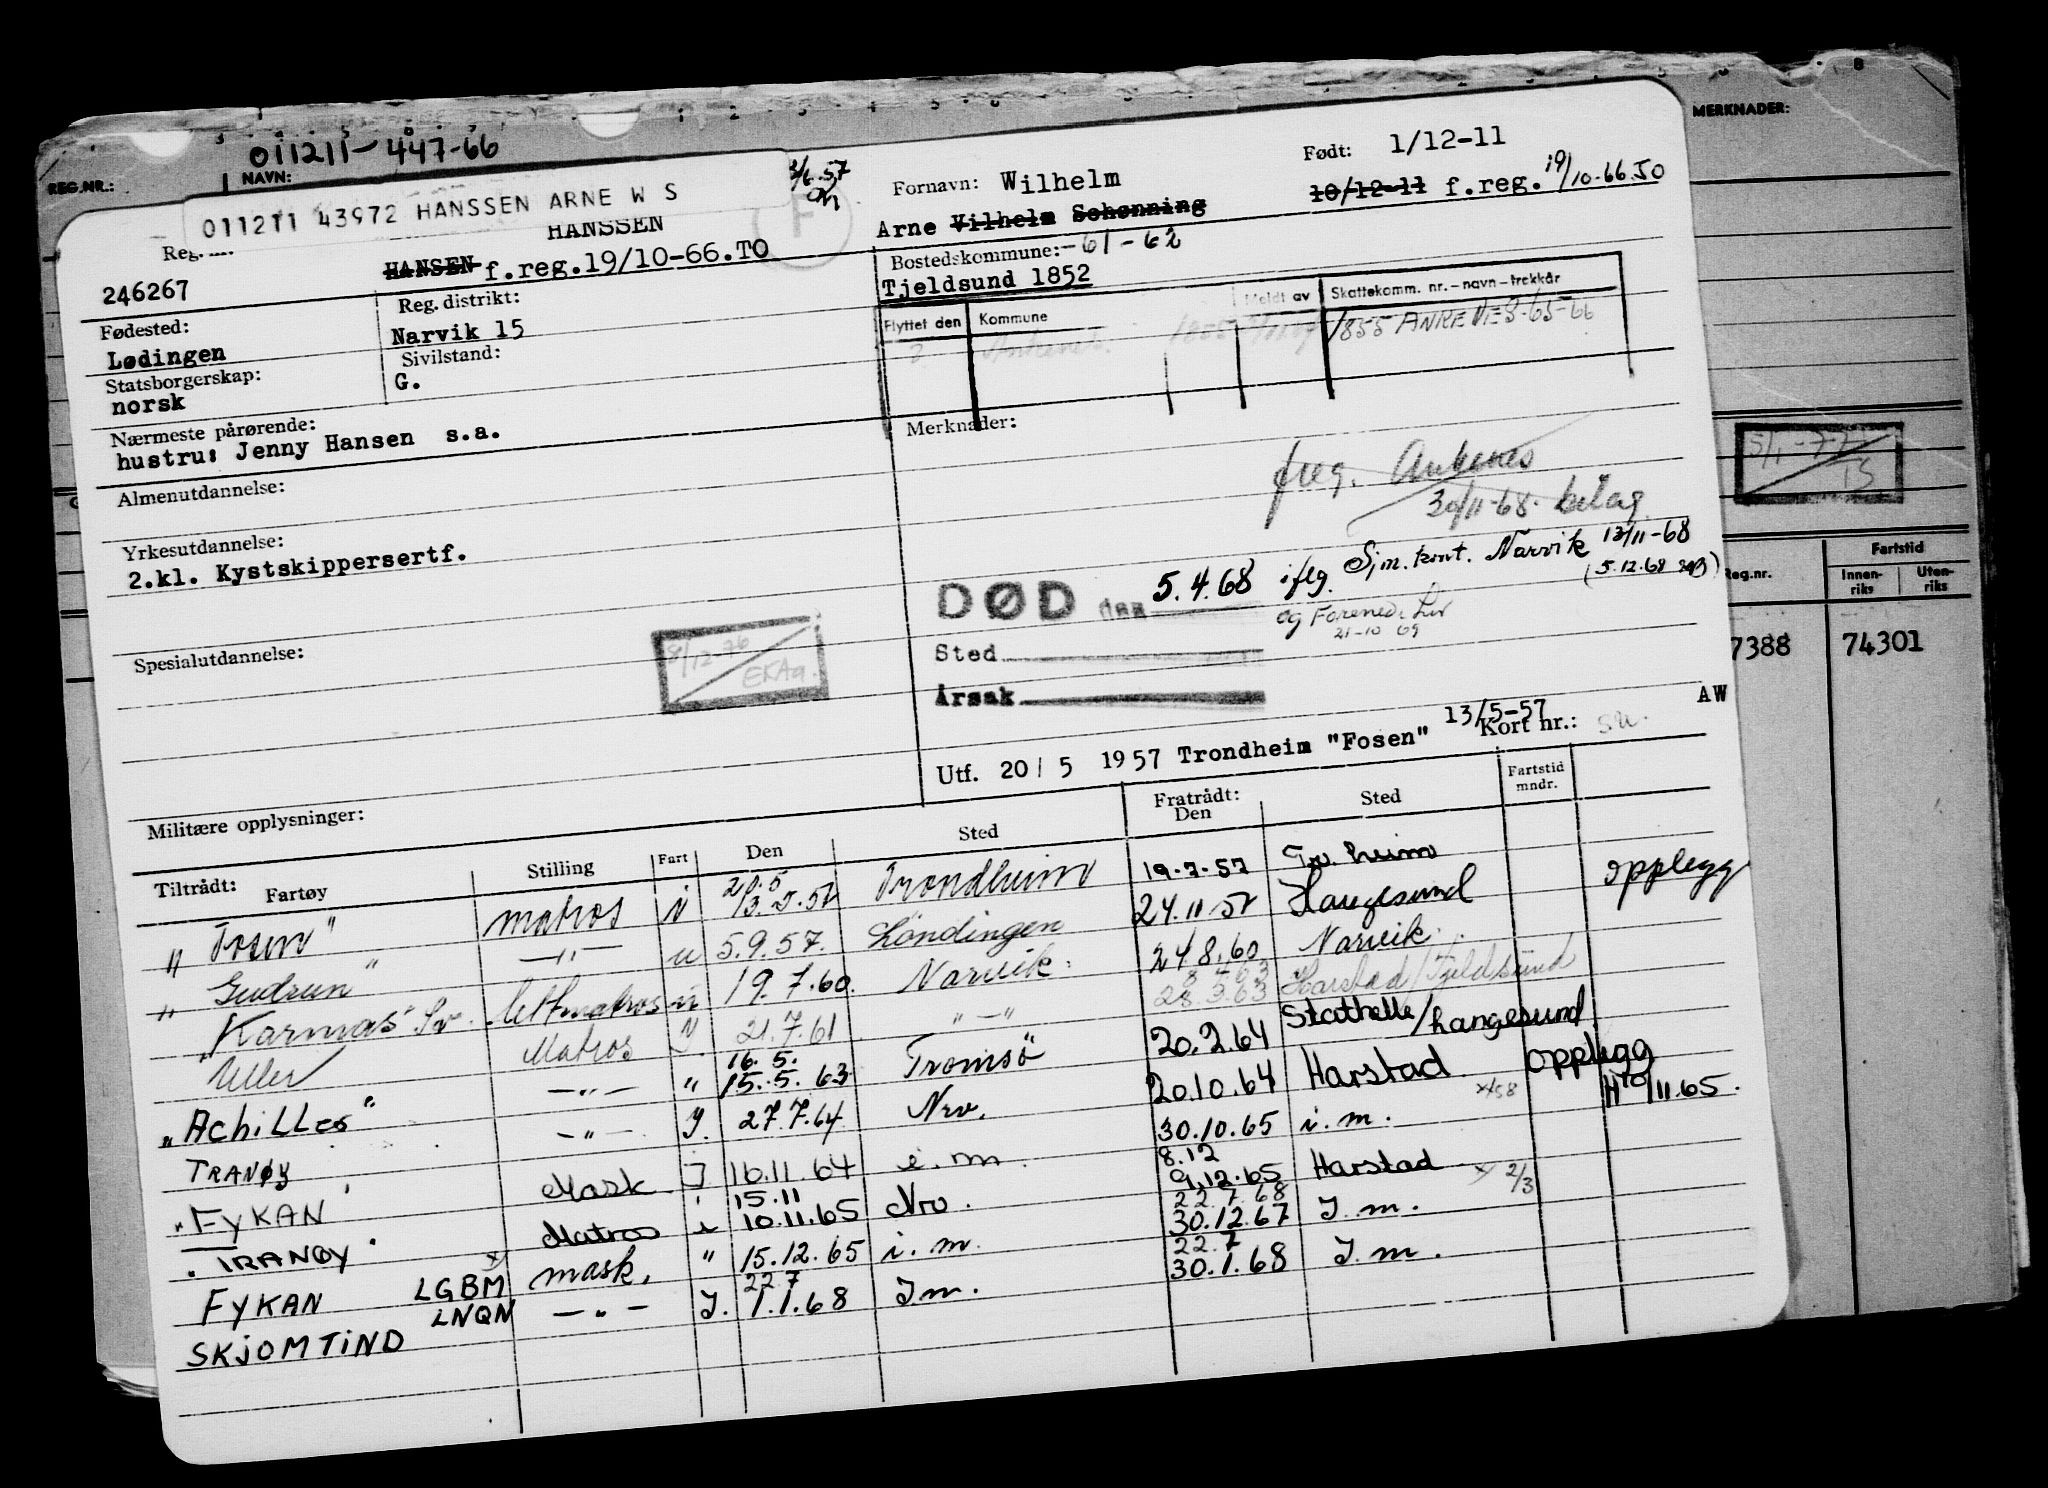 MERKNADER:
011211-447-66
REG.NR.: NAVN:
011211 43972 HANSSEN ARNE W S
2/6.57
Fornavn: Wilhelm
Født: 1/12-11
Reg. nr.
HANSSEN
Arne Vilhelm Schønning
10/12-11 f.reg. 19/10-66.TO
246267
HANSEN f.reg.19/10-66.TO
Bostedskommune: -61-62
Tjeldsund 1852
Fødested:
Lødingen
Reg. distrikt:
Narvik 15
Flyttet den Kommune Meldt av Skattekomm. nr.-navn-trekkår
1855 ANKENES-65-66
Statsborgerskap:
norsk
Sivilstand:
G.
Nærmeste pårørende:
hustru: Jenny Hansen s.a.
Merknader:
Almenutdannelse:
freg. Ankenes
30/11-68. bilag
Yrkesutdannelse:
2.kl. Kystskippersertf.
DØD den 5.4.68 iflg. Sjm.kont. Narvik 13/11-68
(5.12.68
og Forenede Liv
21-10 69
Sted
Årsak
Spesialutdannelse:
8/12-76
EKAa.
5/1-77
TS
Reg.nr. Fartstid
Innen-riks Uten-riks
7388 74301
AW
13/5-57
Utf. 20/5 1957 Trondheim "Fosen" Kort nr.:
Militære opplysninger:
Tiltrådt: Fartøy Stilling Fart Den Sted Fratrådt: Den Sted Fartstid mndr.
"Fosen" matros N 20.5 13.5.57 Trondheim 19-7-57 Tr.heim
"Gudrun" -"- u 5.9.57. Løndingen 24.11 57 Haugesund opplegg
"Karmas" Lettmatros 19.7.60. Narvik. 24.8.60 Narvik.
Uller Matros 21.7.61 "-" 8.4.63 28.3.63 Harstad/Tjeldsund
"Achilles" -"- " 16.5. 15.5.63 Tromsø 20.2.64 Stathelle/haugesund opplegg
TRANØY -"- J. 27.7.64 Nrv. 20.10.64 Harstad
"FYKAN" Mask J 16.11.64 i.m. 30.10.65 i.m. 10/11.65.
"TRANØY" Matros i 15.11 10.11.65 Nrv. 8.12 9.12.65 Harstad
FYKAN LGBM mask. " 15.12.65 i.m. 22.7.68 30.12.67 J.m. 2/3
SKJOMTIND LNQN -"- J. 22.7 1.1.68 J.m. 22.7 30.1.68 J.m.